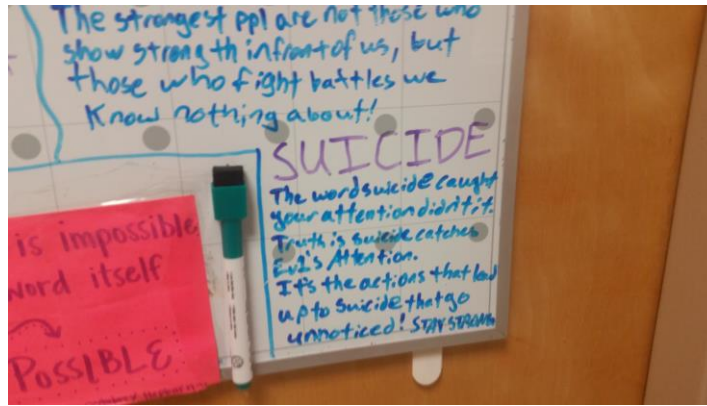 The strongest ppl are not those who
show strength infront of us, but
those who fight battles we
Know nothing about!
SUICIDE
The word suicide caught
your attention didn't it.
Truth is suicide catches
Ev1's Attention.
It's the actions that lead
up to suicide that go
unnoticed! STAY STRONG
is impossible
word itself
POSSIBLE